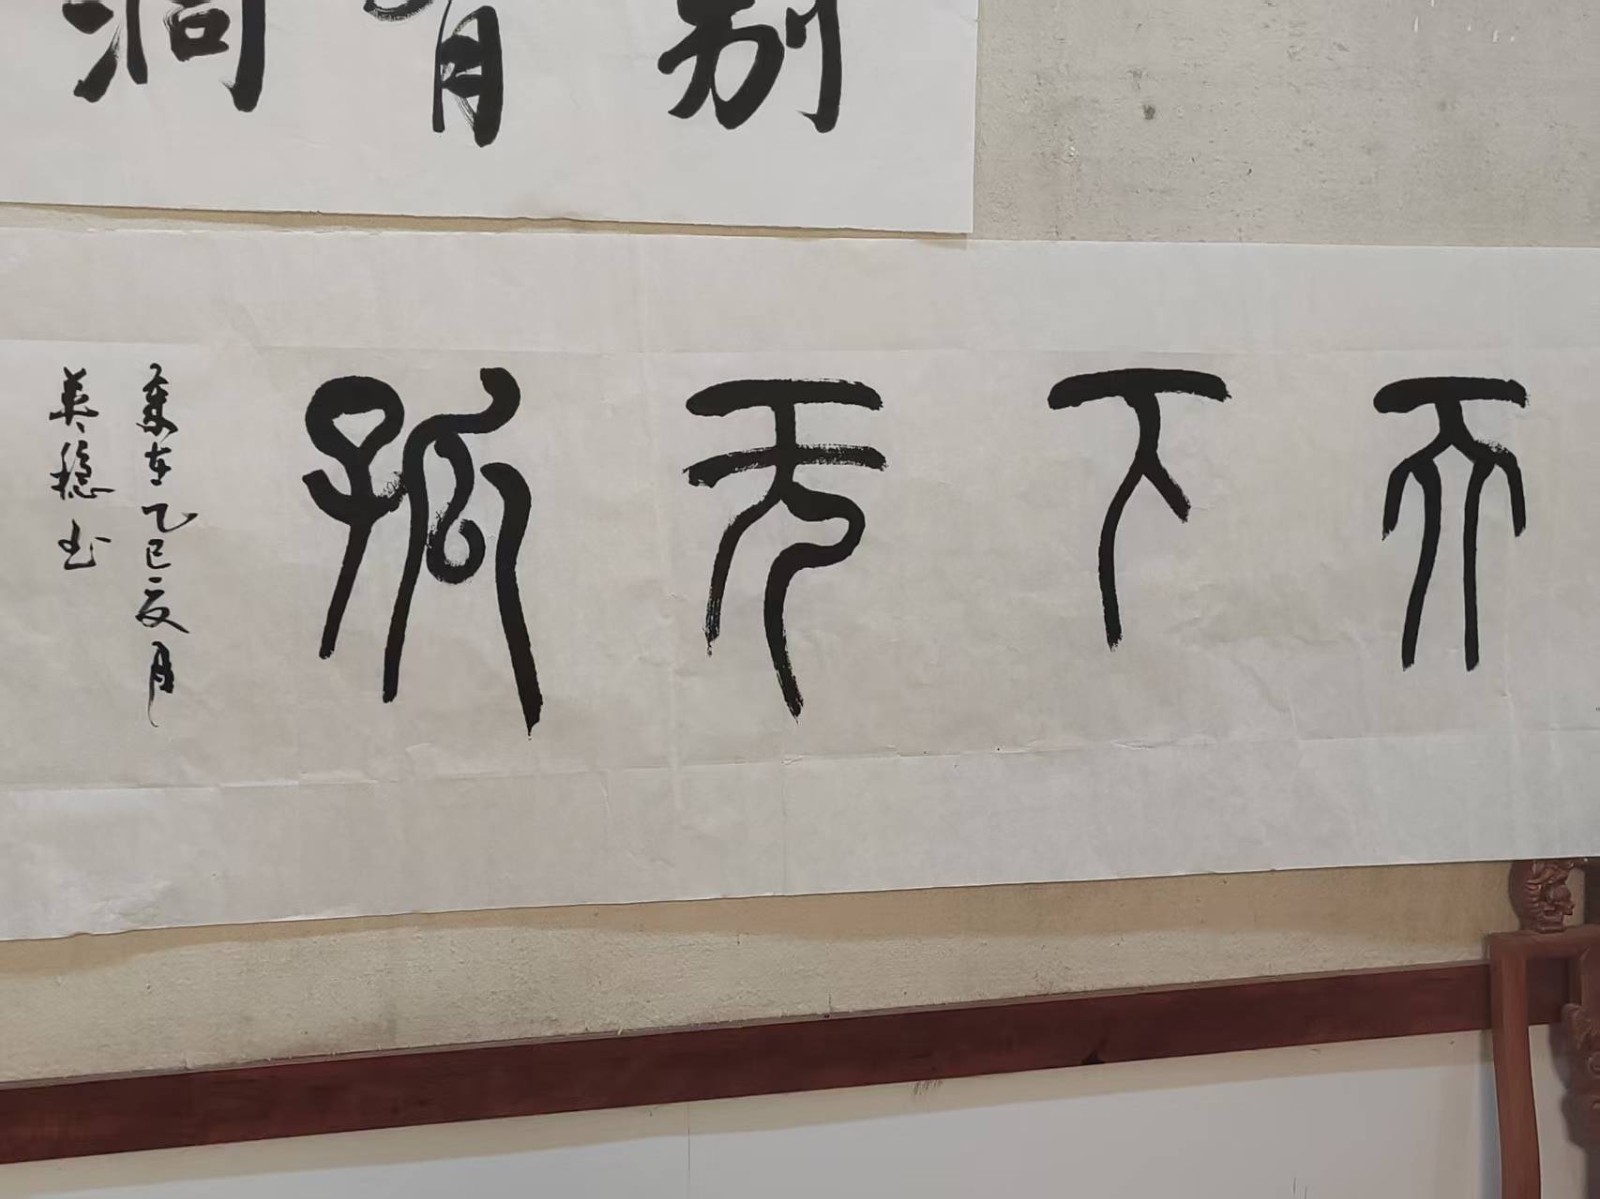 别有洞
天下无孤
岁在乙巳夏月
英稳书